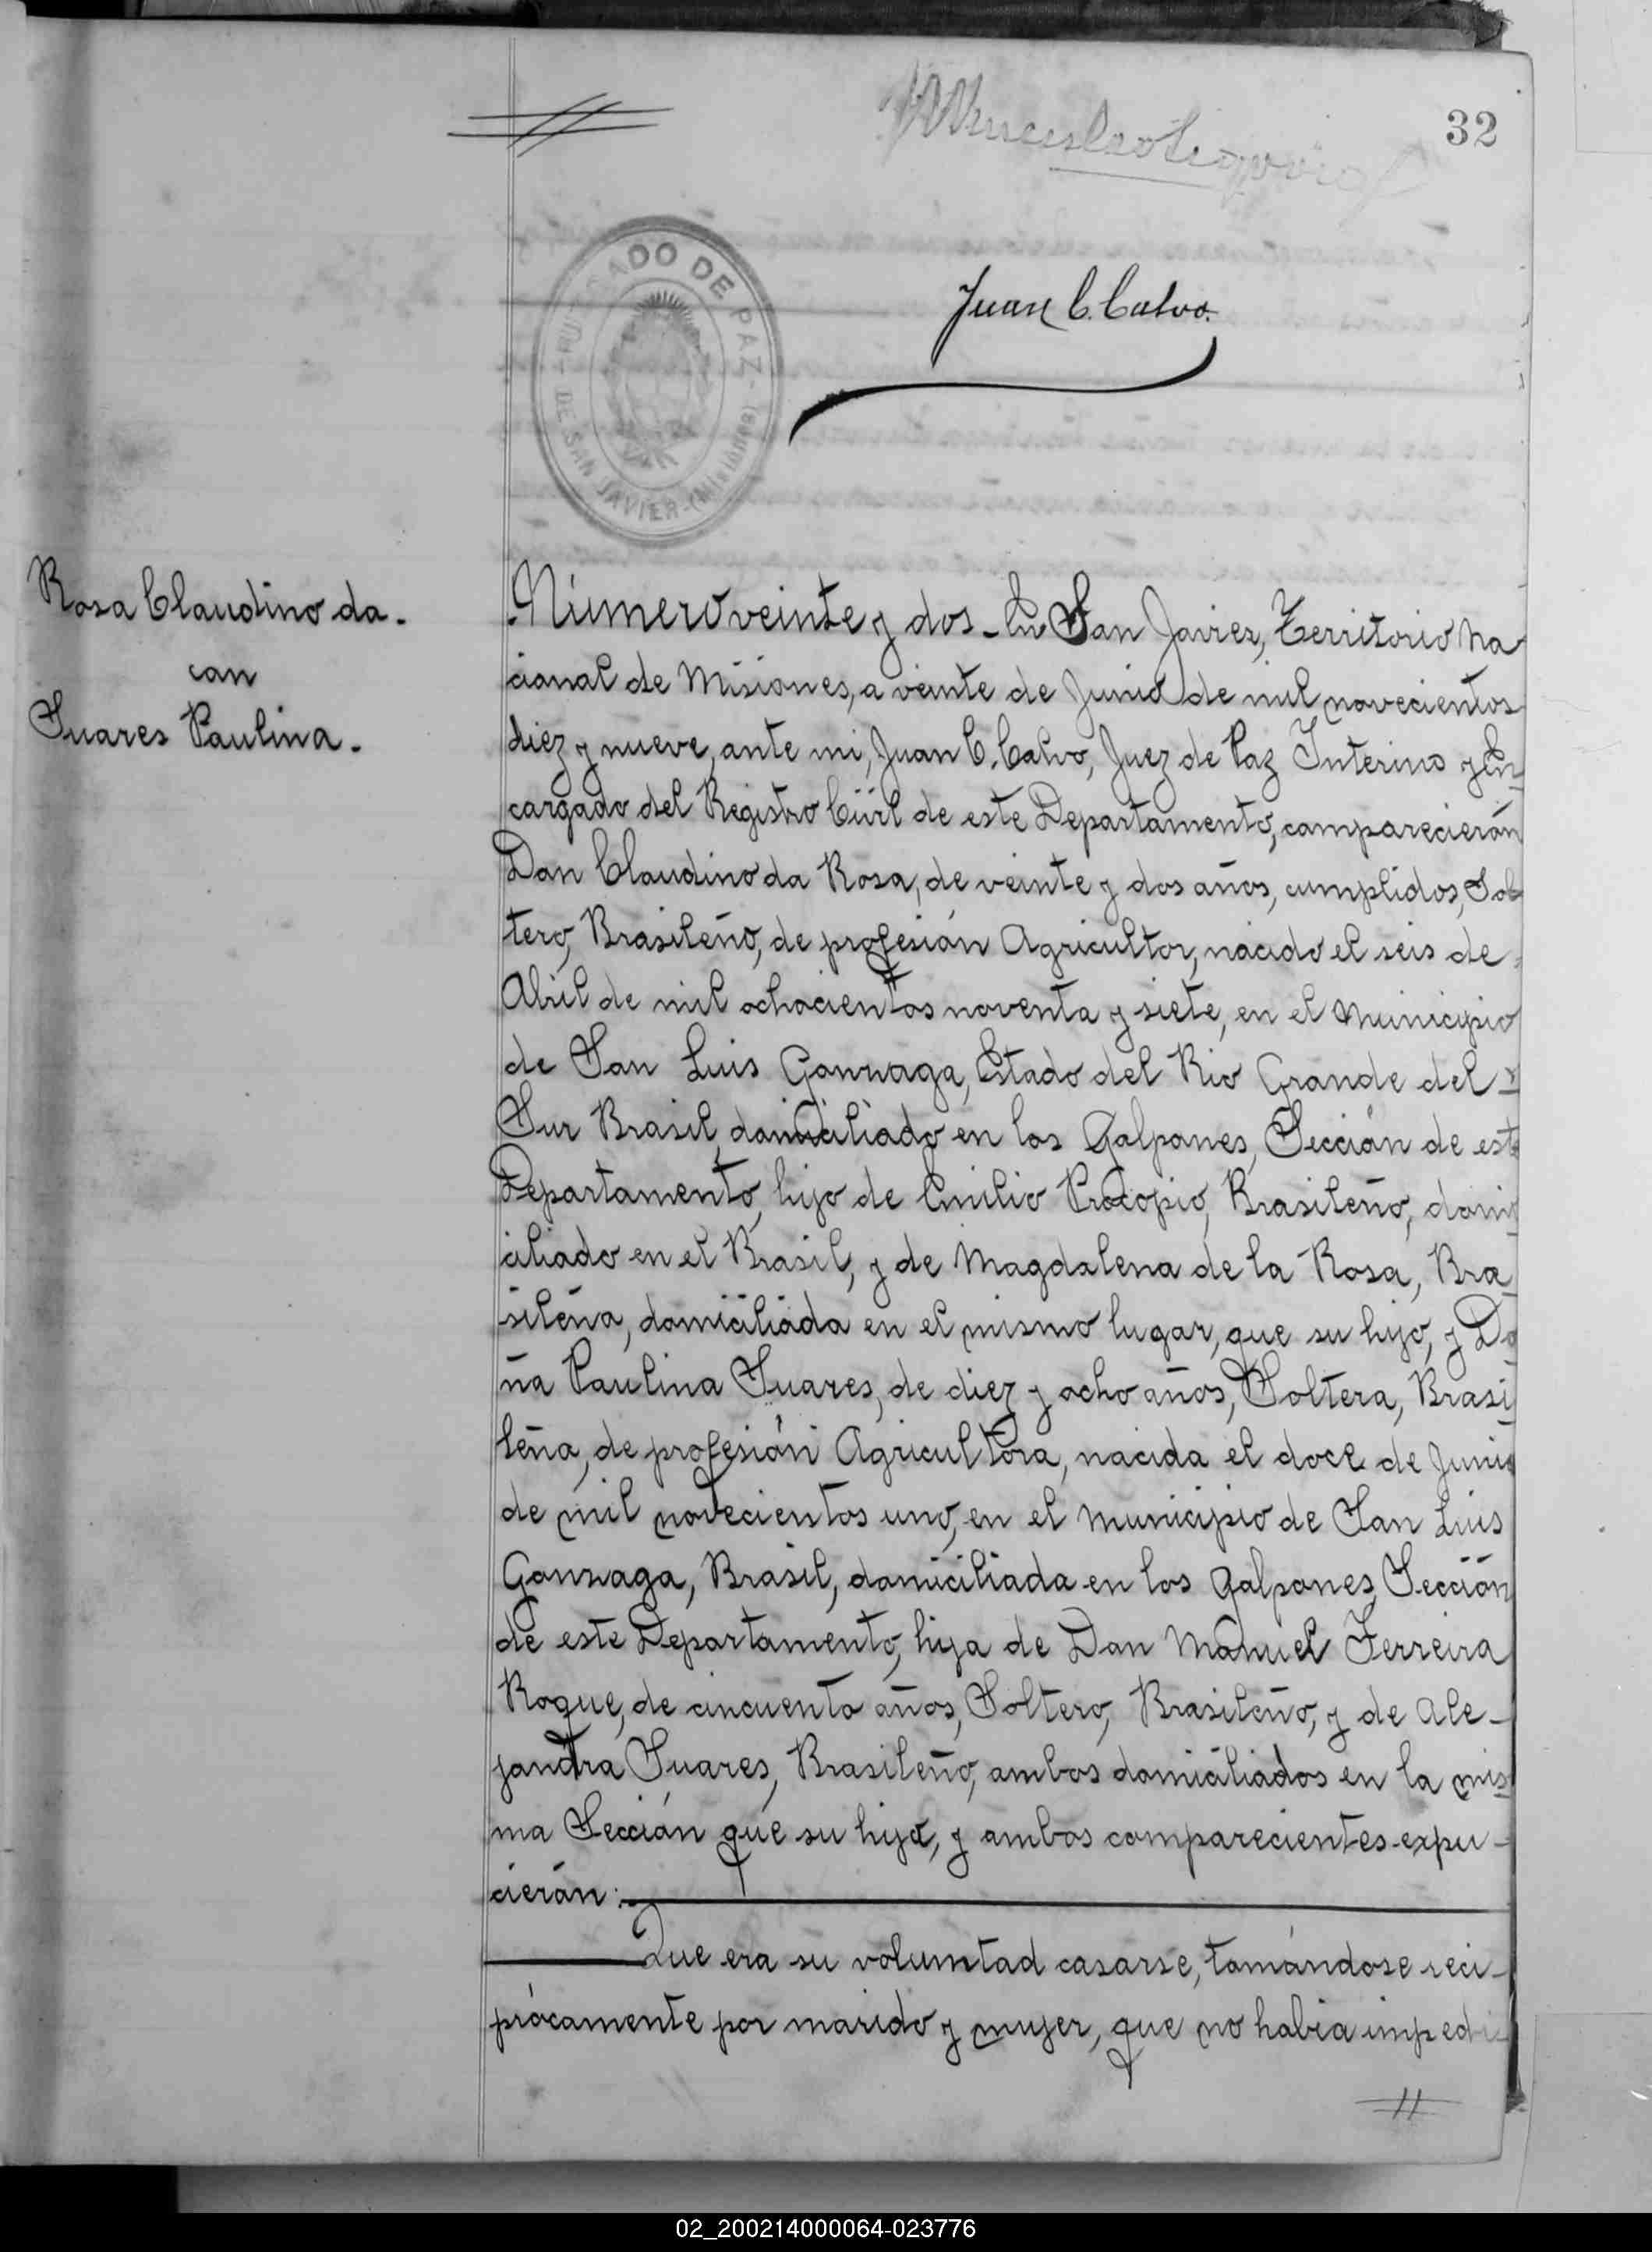 32
Juan C. Calvo.
JUZGADO DE PAZ
DE SAN JAVIER-(Misiones)
Rosa Claudino da.
con
Suares Paulina.
Número veinte y dos - En San Javier, Territorio Na-
cional de Misiones, a veinte de Junio de mil novecientos
diez y nueve, ante mi, Juan C. Calvo, Juez de Paz Interino y En-
cargado del Registro Civil de este Departamento, comparecierón
Don Claudino da Rosa, de veinte y dos años, cumplidos, Sol-
tero, Brasileño, de profesión Agricultor, nacido el seis de
Abril de mil ochocientos noventa y siete, en el Municipio
de San Luis Gonzaga, Estado del Rio Grande del
Sur Brasil, domiciliado en los Galpones, Sección de este
Departamento, hijo de Emilio Procopio, Brasileño, domi-
ciliado en el Brasil, y de Magdalena de la Rosa, Bra-
sileña, domiciliada en el mismo lugar, que su hijo, y Do-
ña Paulina Suares, de diez y ocho años, Soltera, Brasi-
leña, de profesión Agricultora, nacida el doce de Junio
de mil novecientos uno, en el Municipio de San Luis
Gonzaga, Brasil, domiciliada en los Galpones, Sección
de este Departamento, hija de Don Manuel Ferreira
Roque, de cincuenta años, Soltero, Brasileño, y de Ale-
jandra Suares, Brasileño, ambos domiciliados en la mis-
ma Sección que su hija, y ambos comparecientes expu-
cierán:
Que era su voluntad casarse, tomándose reci-
prócamente por marido y mujer, que no habia impedi
02_200214000064-023776